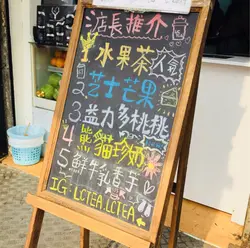 店長推介
1 水果茶 人氣
2 芝士芒果
3 益力多桃桃
4 熊貓珍奶茶
5 鮮牛乳香芋
IG: LCTEA LCTEA